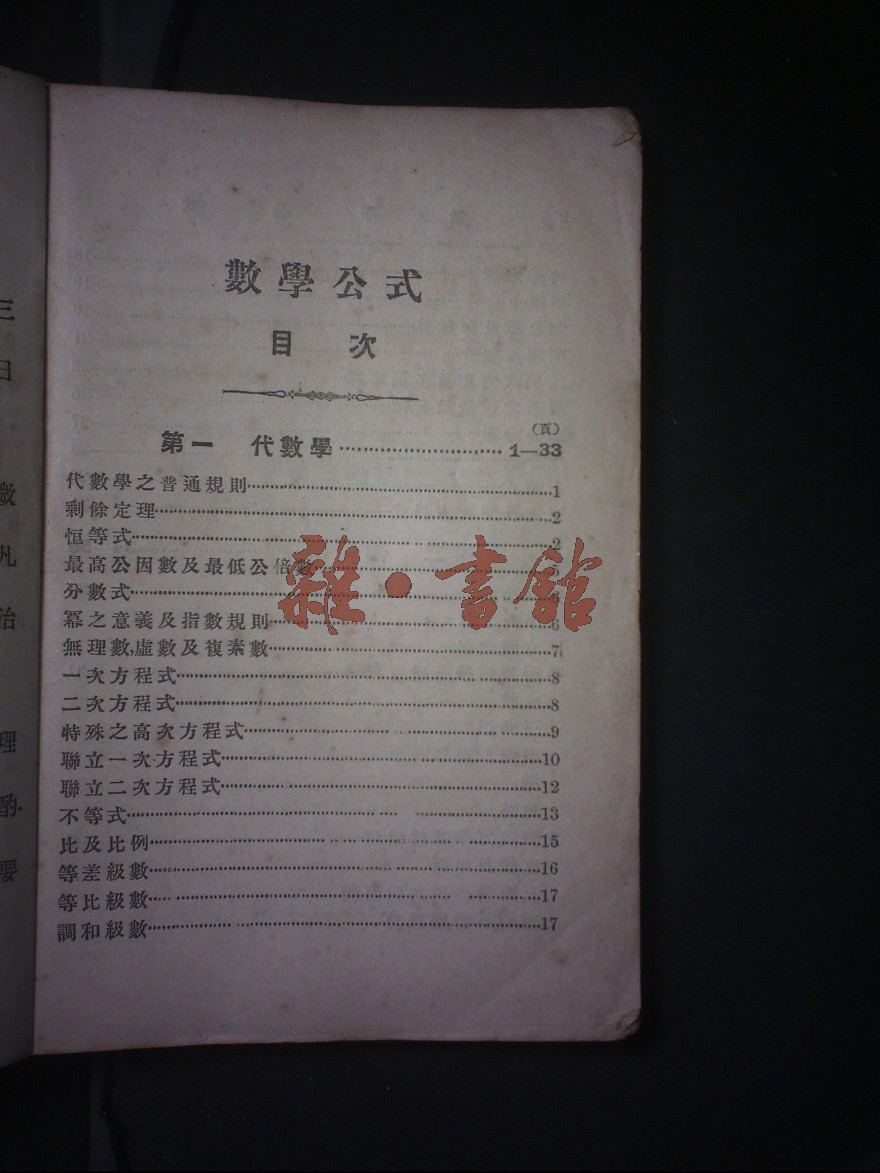 數學公式
目次
(頁)
第一 代數學……………………1—33
代數學之普通規則……………………1
剩餘定理……………………2
恒等式……………………2
最高公因數及最低公倍數……………………
分數式……………………
冪之意義及指數規則……………………6
無理數,虛數及複素數……………………7
一次方程式……………………8
二次方程式……………………8
特殊之高次方程式……………………9
聯立一次方程式……………………10
聯立二次方程式……………………12
不等式……………………13
比及比例……………………15
等差級數……………………16
等比級數……………………17
調和級數……………………17
雜·書館